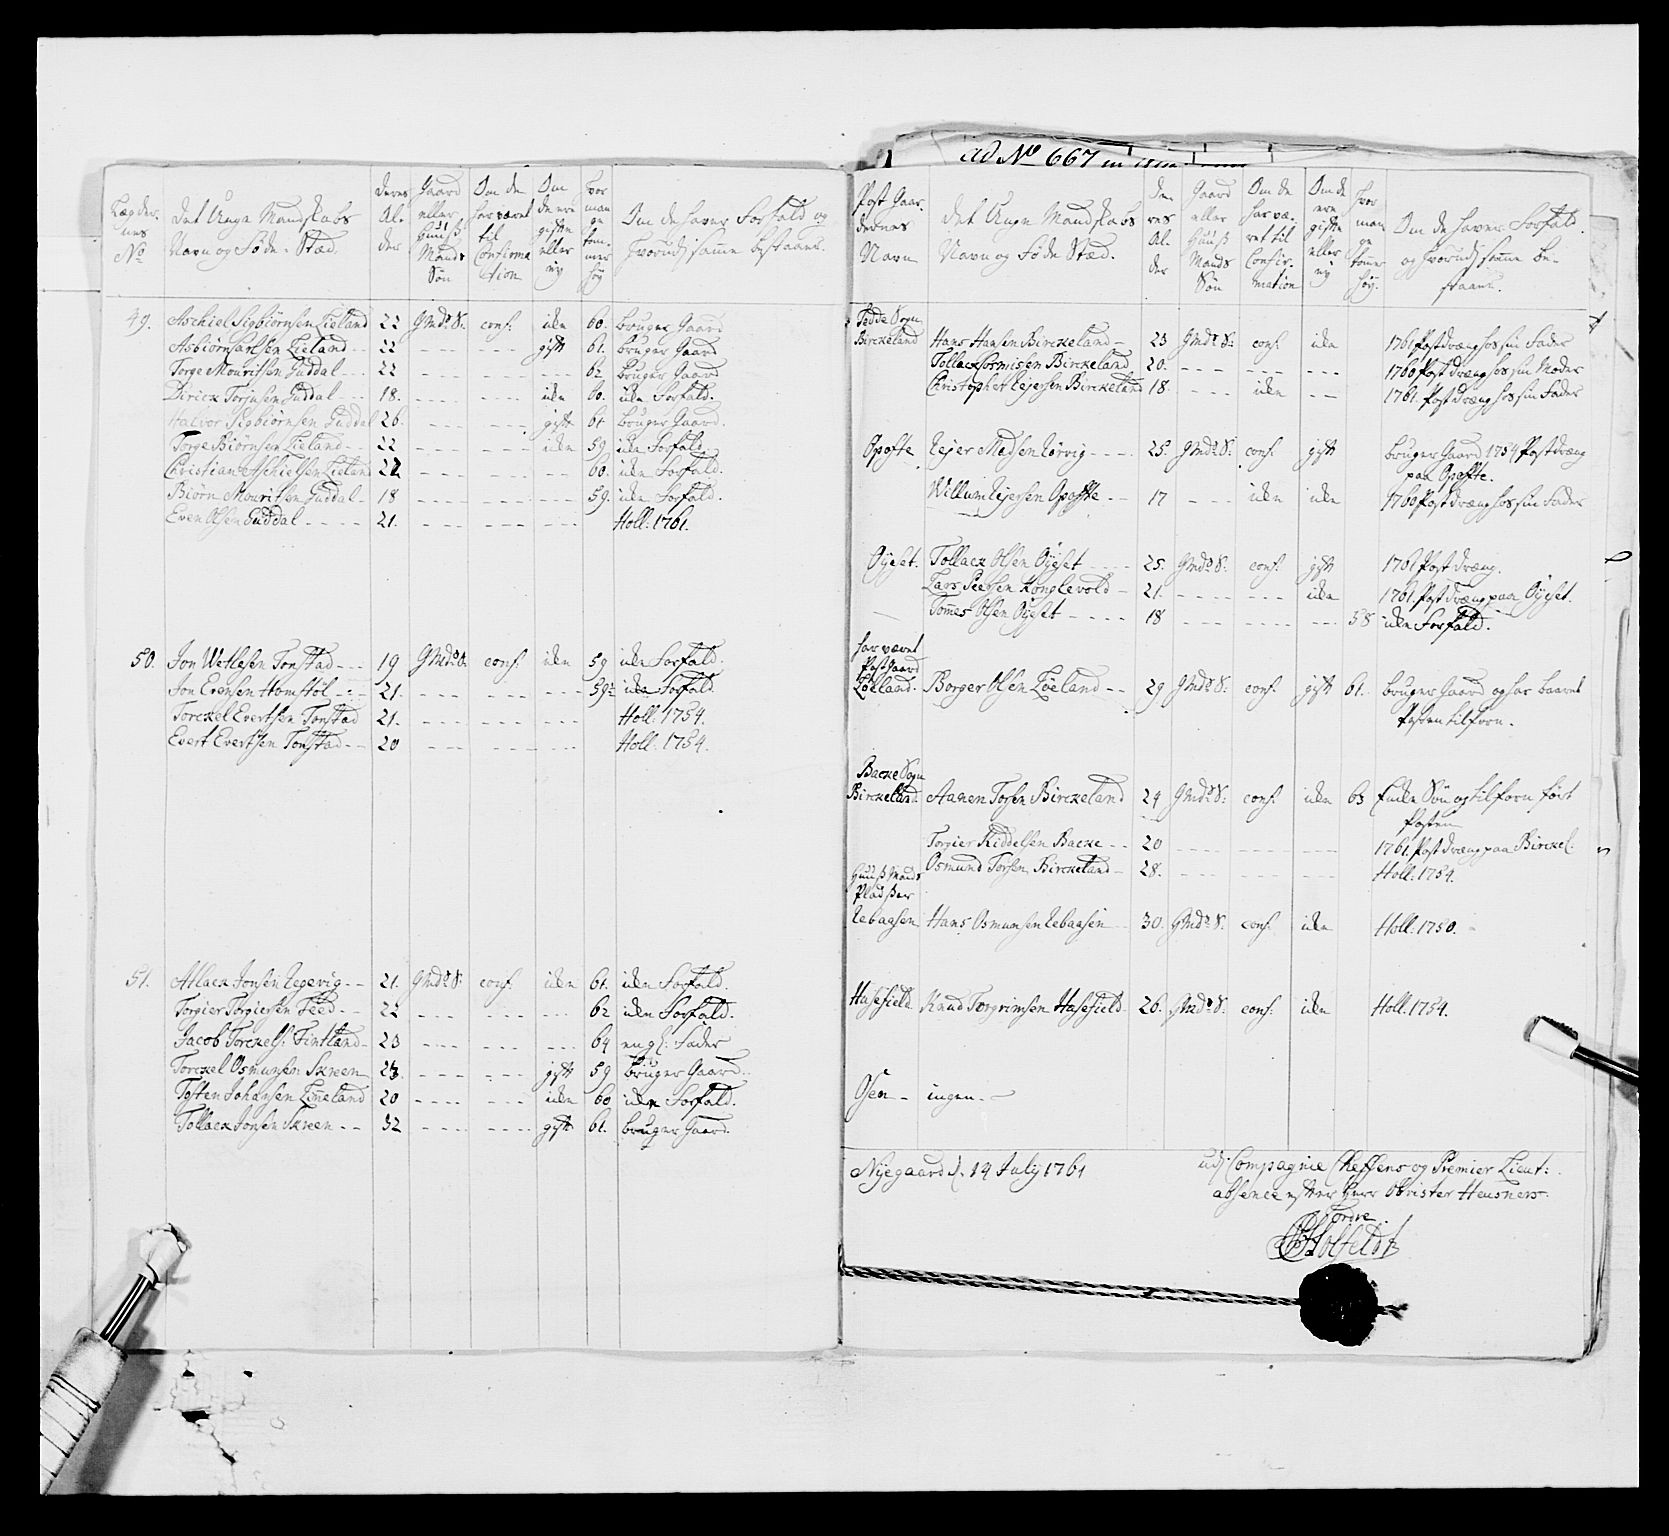 Lægder-
nes
No
Det Unge Mandskabs
Navn og Føde-Stæd.
deres
Al-
der
Gaard
eller
Huuß
Mands
Søn
Om de
har været
til
Confirma
tion
Om
de ere
gifte
eller
ey
hvor
man
ge
tom-
mer
høy
Om de haver Forfald og
hvorudj samme bestaaer.
49. Aschiel Sigbiørnsen Lieland 22 Gmds S: conf: iche 60. bruger Gaard
Asbiørn Carlsen Lieland 22 gift 61. bruger Gaard
Torge Mouritsen Guddal 22 62 bruger Gaard
Dirick Torjusen Guddal 18. iche 60. iche Forfald.
Halvor Sigbiørnsen Guddal 26. gift 61 bruger Gaard.
Torge Biørnsen Lieland 22 iche 59 iche Forfald.
Christian Aschielsen Lieland 22 60. iche Forfald.
Biørn Mouritsen Guddal 18 59. iche Forfald.
Even Olsen Guddal 21. Holl: 1761.
50. Jon Wetlesen Tonstad 19 Gmds S. conf: iche 59 iche Forfald.
Jon Evensen Homstøl 21. 59 iche Forfald.
Torckel Evertsen Tonstad 21. Holl: 1754.
Evert Evertsen Tonstad 20 Holl: 1754.
51. Atlack Jonsen Regevig 21. Gmds S: conf: iche 61. iche Forfald.
Torgier Torgiersen Feed 22 62 iche Forfald.
Jacob Torckels: Fintland 23 64 Fader
Torckel Osmunsen Skreen 23. gift 59 bruger Gaard.
Tosten Johansen Lineland 20 iche 60 iche Forfald.
Tollack Jonsen Skreen 32 gift 61. bruger Gaard.
ad No 667
Post Gaar-
dernes
Navn
Det Unge Mandskabs
Navn og Føde Stæd.
De-
res
Al-
der
Gaard
eller
Huuß
Mands
Søn
Om de
har væ-
ret til
Confir-
mation
Om de
ere
gifte
eller
ey
hvor
man
ge
tomer
høy.
Om de haver Forfald.
og hvorudj samme be-
staaer.
Fedde Sogn
Birckeland Hans Hansen Birckeland 23 Gmds S: conf: iche 1761 Postdræng hos sin Fader
Tollack Birckeland 20. 1760 Post dræng hos sin Moder
Christopher Rejersen Birckeland 18. iche 1761. Postdræng hos sin Fader
Opofte Rejer Madsen Rørvig 25. Gmds S: conf: gift bruger Gaard 1754 Postdræng
paa Opoffte.
Willum Rejersen Opoffte 17 iche iche 1760 Postdræng hos sin Fader
Øyeset. Tollack Olsen Øyeset 25. Gmds S. conf: gift 1761 Post dræng.
Lars Peersen Konglevold 21. iche 1761. Post dræng paa Øyeset.
Tomes Olsen Øyeset 18 58 iche Forfald.
har været
Post Gaard
Løeland. Børger Olsen Løeland 29 Gmds S: conf: gift 61. bruger Gaard og har baaret
Posten tilforn.
Backe Sogn
Birckeland. Aanen Torsen Birckeland 24 Gmds S: conf: iche 63 Søn og tilforn ført
Posten
Torgier Riddelsen Backe 20 1761. Post dræng paa Birckel:
Osmund Torsen Birckeland 28. Holl: 1754.
Huuß Mands
Pladßer
Rebaasen Hans Osmunsen Rebaasen 30. Gmds S. conf: iche Holl: 1750.
Hasefield Knud Torgrimsen Hasefield 26. Gmds S. conf: iche Holl: 1754.
Osen ingen.
Nyegaard d. 14 July 1761
udj Compagnie Cheffens og Premier Lieut:
absence efter Herr Obrister Heusners
Ordre.
Holfeldt